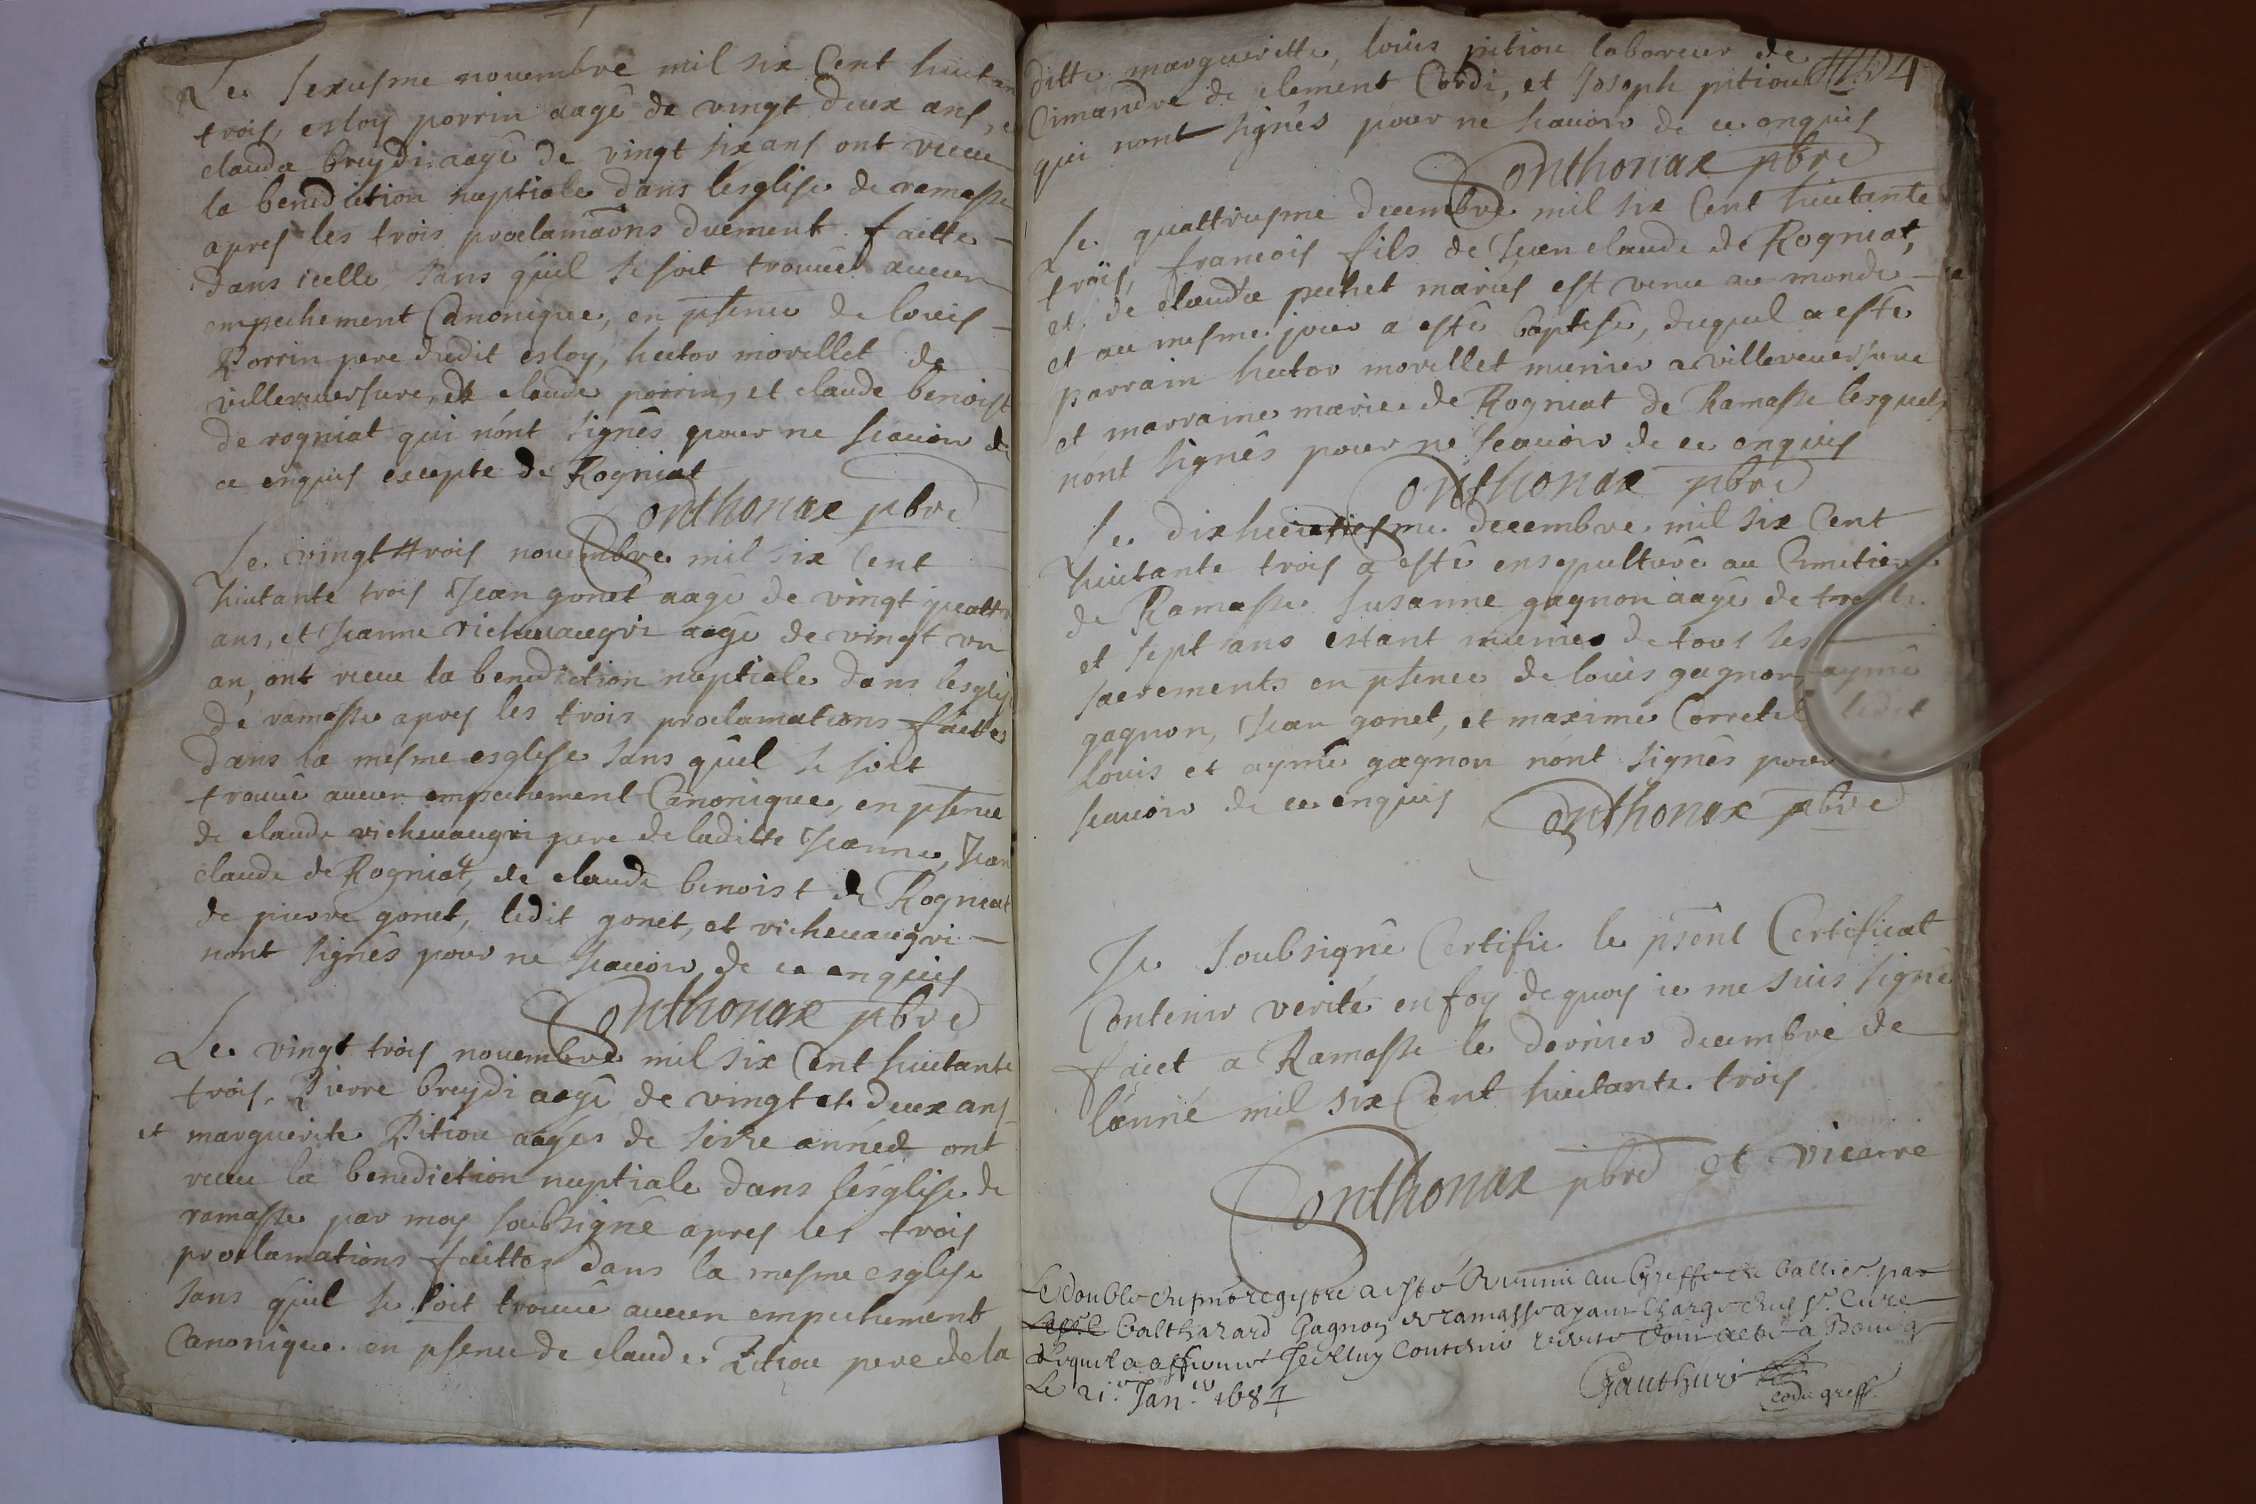 Le sexiesme nouembre mil six Cent huictan
trois, esloy porrin aagé de vingt deux ans, e
clauda breydi aagé de vingt six ans ont receu
la benediction nuptiale dans lesglise de ramasse
apres les trois proclamaons duement faitte
dans icelle sans quil se soit trouué aucun
empechement Canonique, en psence de louis
Porrin pere dudit esloy, hector morillet de
villereuersure, de claude porrin, et claude benoist
de rogniat qui nónt signés pour ne scauoir de
ce enquis excepte de Rogniat
Sonthonax pbre
Le vingt trois nouembre mil six Cent
huictante trois Jean gonet aagé de vingt quattre
ans, et Jeanne vicheuaugri aagé de vingt vn
an, ont receu la benediction nuptiale dans lesglis
de ramasse apres les trois proclamations faittes
dans la mesme esglise sans quil se soit
trouué aucun empechement Canonique, en psence
de claude vicheuaugri pere de laditte Jeanne, Jean
claude de Rogniat, de claude benoist de Rogniat
de pierre gonet, ledit gonet, et vicheuaugri
nont signés pour ne scauoir de ce enquis
Sonthonax pbre
Le vingt trois nouembre mil six Cent huictante
trois, Pierre breydi aagé de vingt et deux ans
et marguerite Pitiou aagés de seize année ont
receu la benediction nuptiale dans lésglise de
ramasse par moy soubsigné apres les trois
proclamations faittes dans la mesme esglise
sans quil se soit trouué aucun empechement
Canonique en psence de claude Pitiou pere de la
ditte margueritte, louis pitiou laboreur de
Cimandre de clement Cordi, et Joseph pitiou
qui nont signés pour ne scauoir de ce enquis
Sonthonax pbre
Le quattriesme decembre mil six Cent huictante
trois, francois fils de Jean claude de Rogniat,
et de clauda pechet mariés est venu au monde
et au mesme jour a esté baptisé, duquel a esté
parrain hector morillet munier a villereuersure
et marraine marie de Rogniat de Ramasse lesquels
nónt signés pour ne scauoir de ce enquis
Sonthonax pbre
Le dixhuictiesme decembre mil six Cent
huictante trois a esté ensepulturé au Cimetiere
de Ramasse susanne gagnon aagé de trente
et sept ans estant munies de tous les
sacrements en psence de louis gagnon, aymé
gagnon, Jean gonet, et maxime Corretel ledit
louis et aymé gagnon nónt signés pour
scauoir de ce enquis
Sonthonax pbre
Je soubsigné Certifie le psent Certificat
Contenir verité en foy dequoy ie me suis signé
faict a Ramasse le dernier decembre de
lánné mil six Cent huictante trois
Sonthonax pbre et vicaire
Le double du pnt regytre a esté Remis au Greffe du balliage par
balthazard Gagnon de ramasse ayant charge dud sr. Curé
Lequel a affirmé Icelluy Contenir verité dont acte a Bourg
Le 21e Janer 1684
Gauthier
greff.